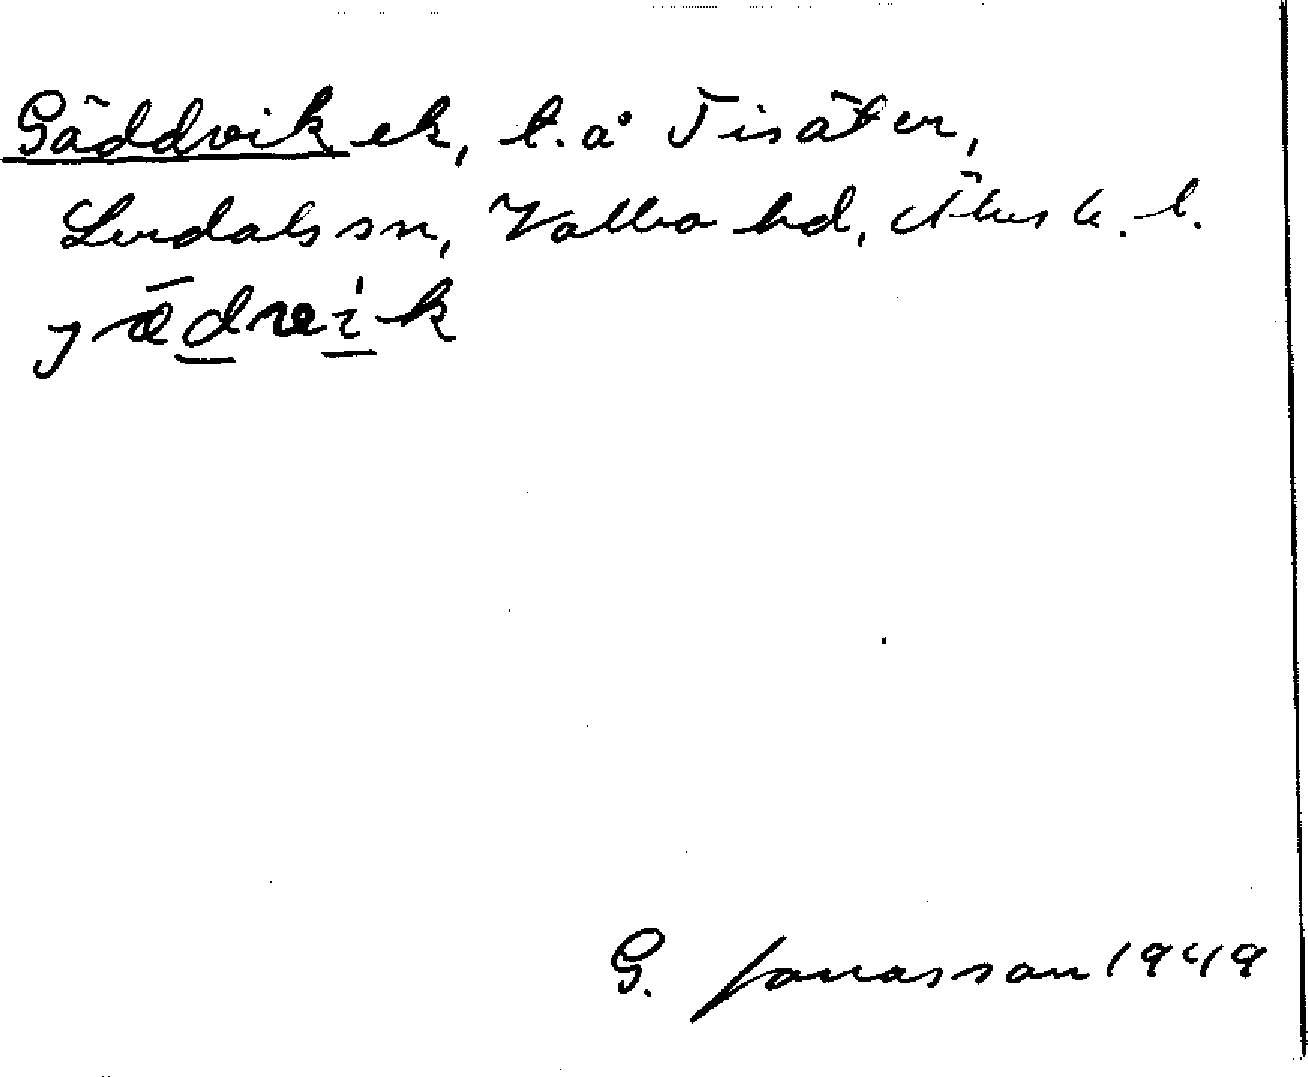 Gäddvik ek, l. å Tisäter,
Lerdals sn, Valbo hd, Älvsb. l.
G. Jonasson 1949